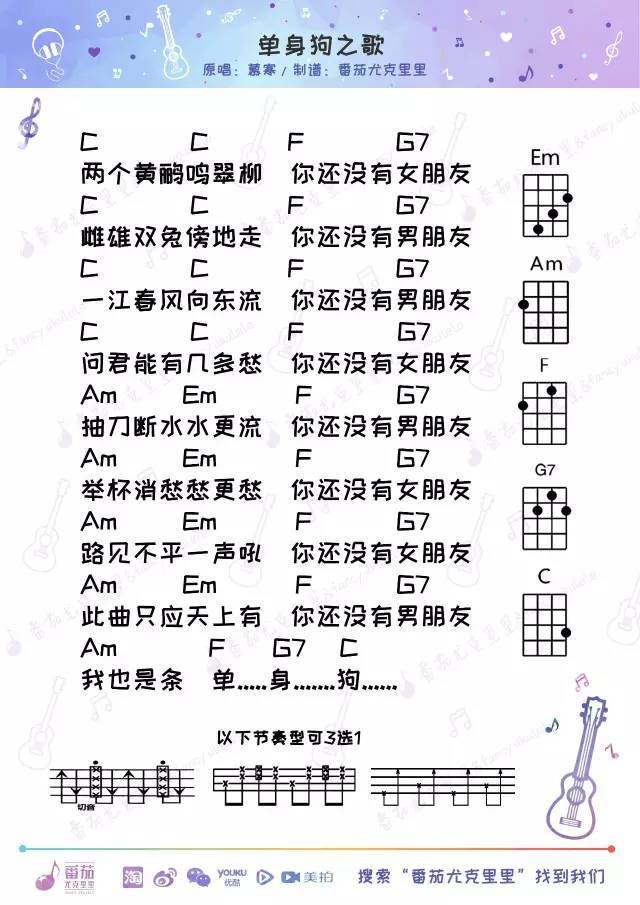 单身狗之歌
原唱：慕寒 / 制谱：番茄尤克里里
C C F G7
两个黄鹂鸣翠柳 你还没有女朋友
C C F G7
雌雄双兔傍地走 你还没有男朋友
C C F G7
一江春风向东流 你还没有男朋友
C C F G7
问君能有几多愁 你还没有男朋友
Am Em F G7
抽刀断水水更流 你还没有男朋友
Am Em F G7
举杯消愁愁更愁 你还没有女朋友
Am Em F G7
路见不平一声吼 你还没有女朋友
Am Em F G7
此曲只应天上有 你还没有男朋友
Am F G7 C
我也是条 单.....身.......狗......
Em
Am
F
G7
C
以下节奏型可3选1
切音
番茄
尤克里里
淘
YOUKU
优酷
美拍
搜索“番茄尤克里里”找到我们